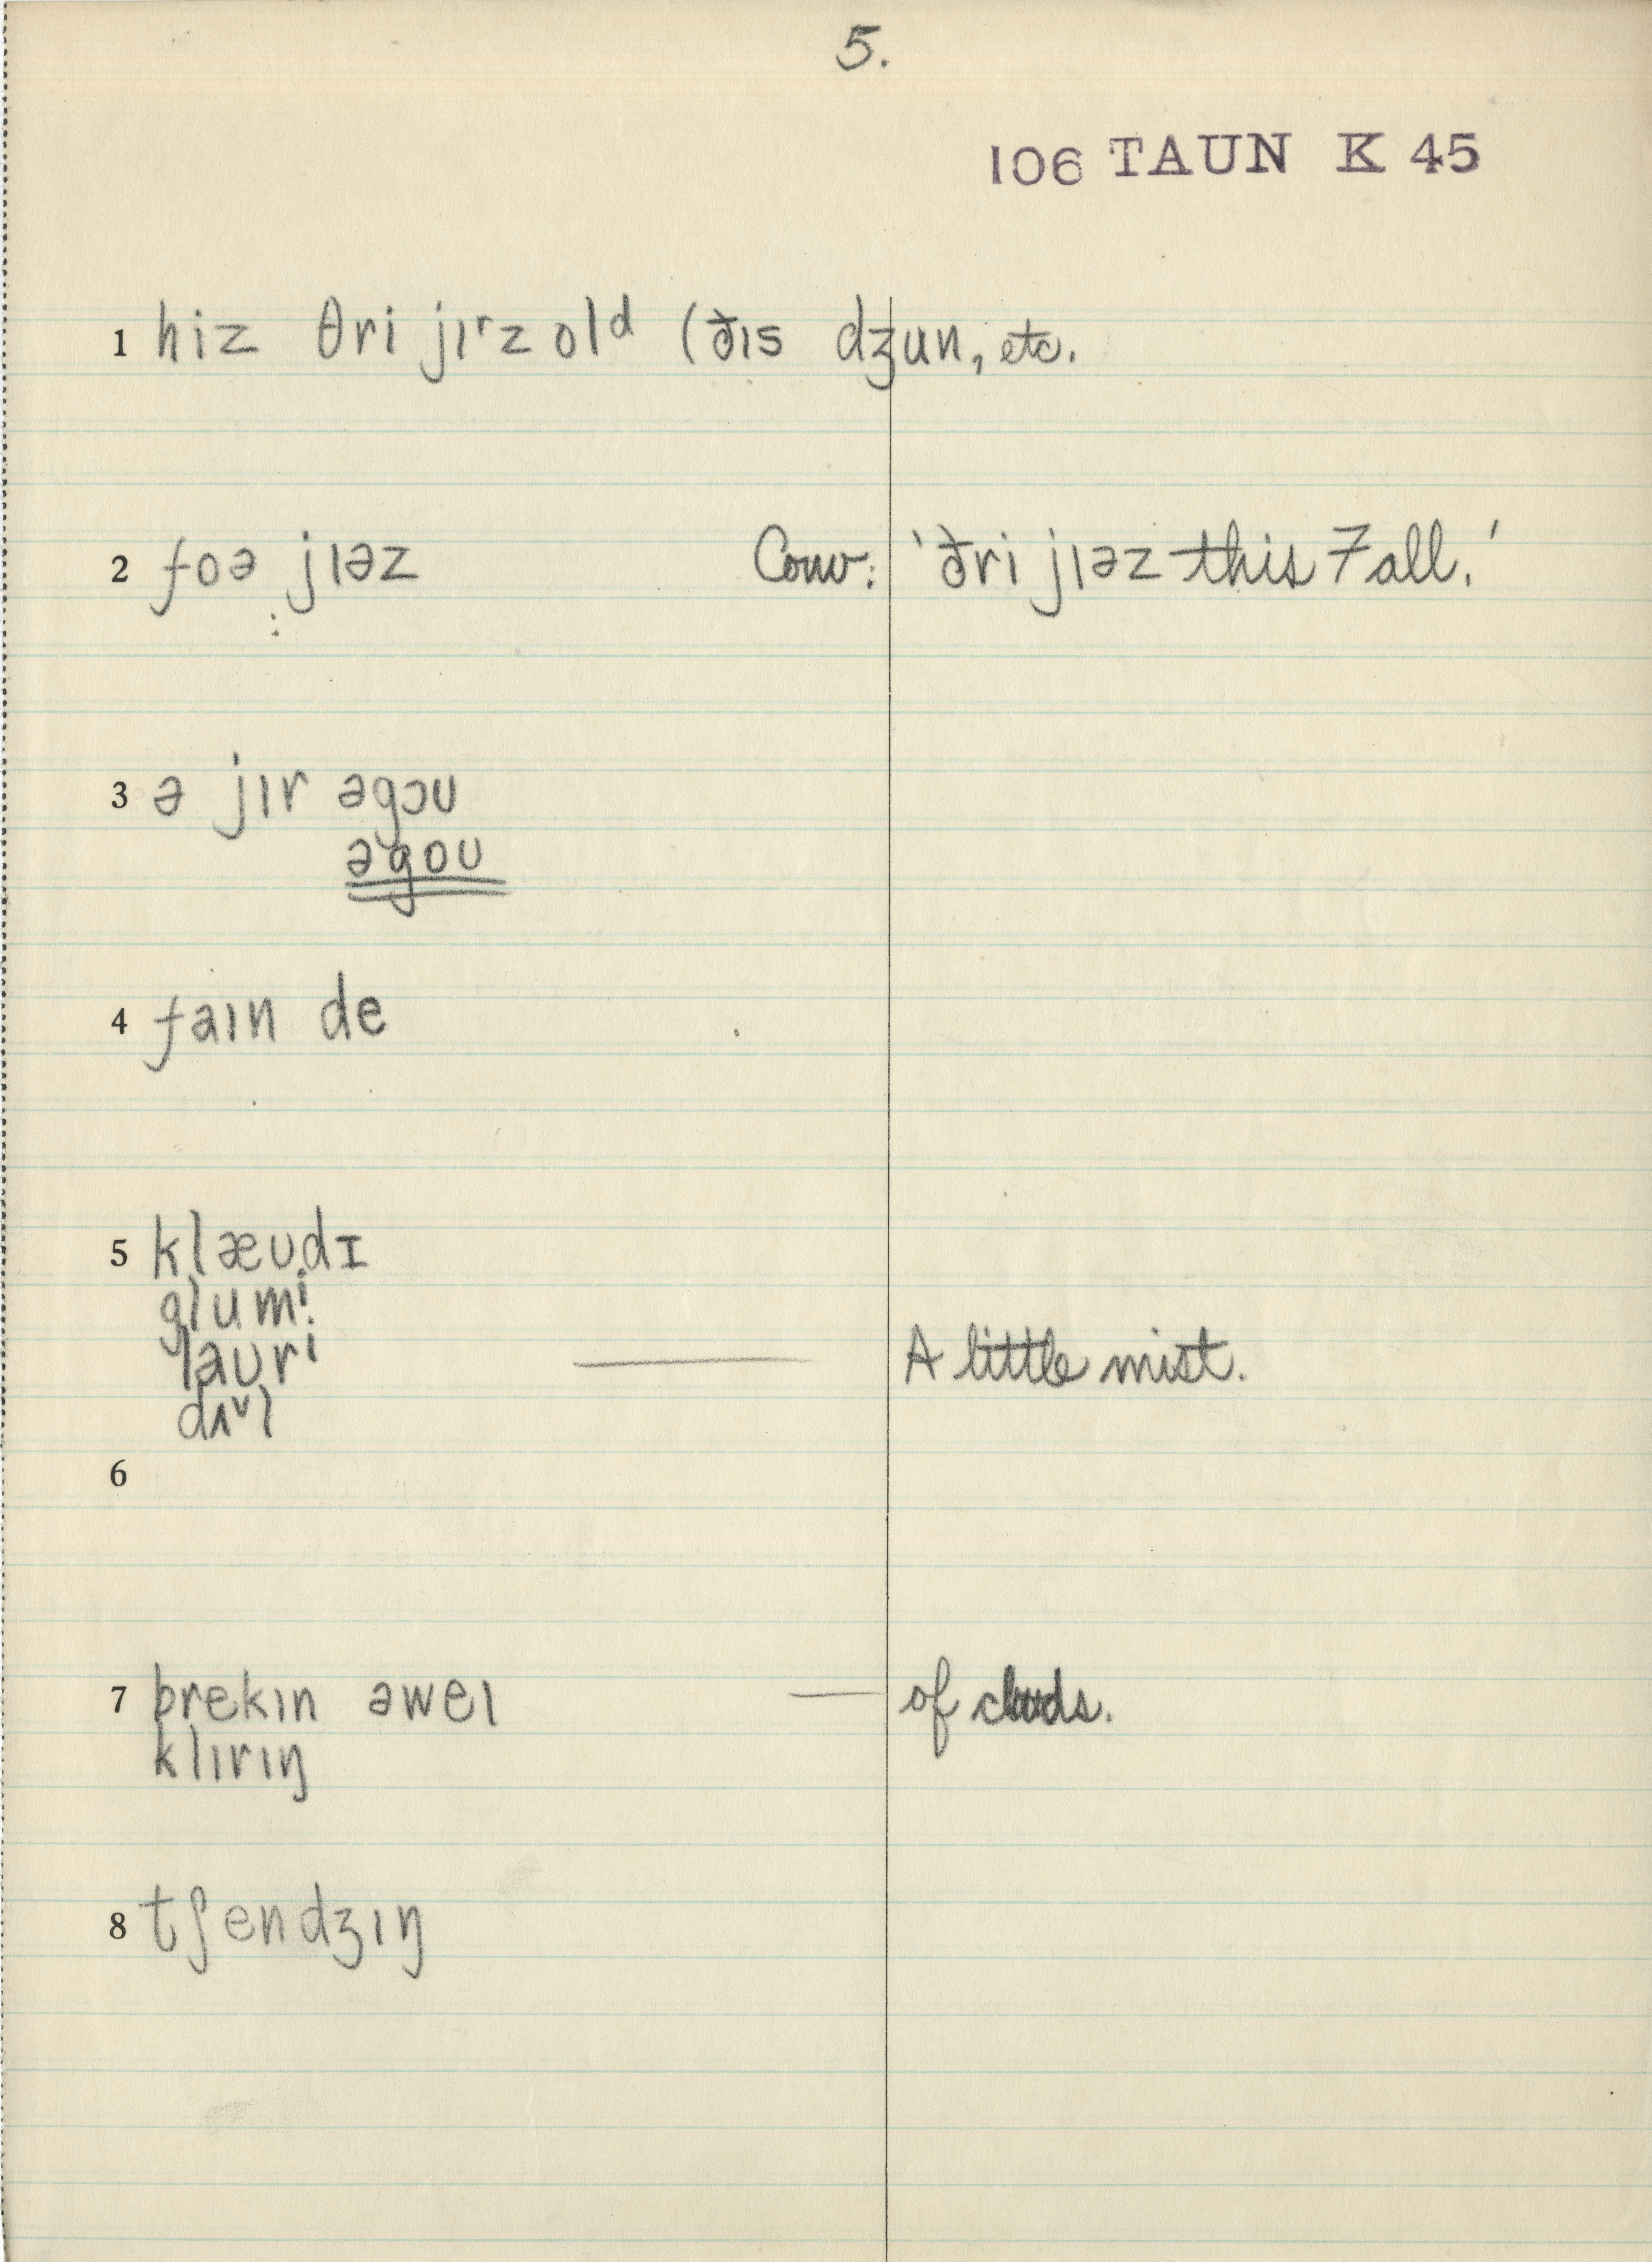 5.
106 TAUN K 45
1 hiz θri jɪʳz olᵈ (ðɪs dʒun, etc.
2 foə jɪəz Conv: 'ðri jɪəz this Fall.'
3 ə jɪr əgɔʊ
əgoʊ
4 faɪn de
5 klæʊdɪ
glumi
laʊri A little mist.
dʌᵛl
6
7 brekɪn əweɪ — of clouds.
klɪrɪŋ
8 tʃendʒɪŋ